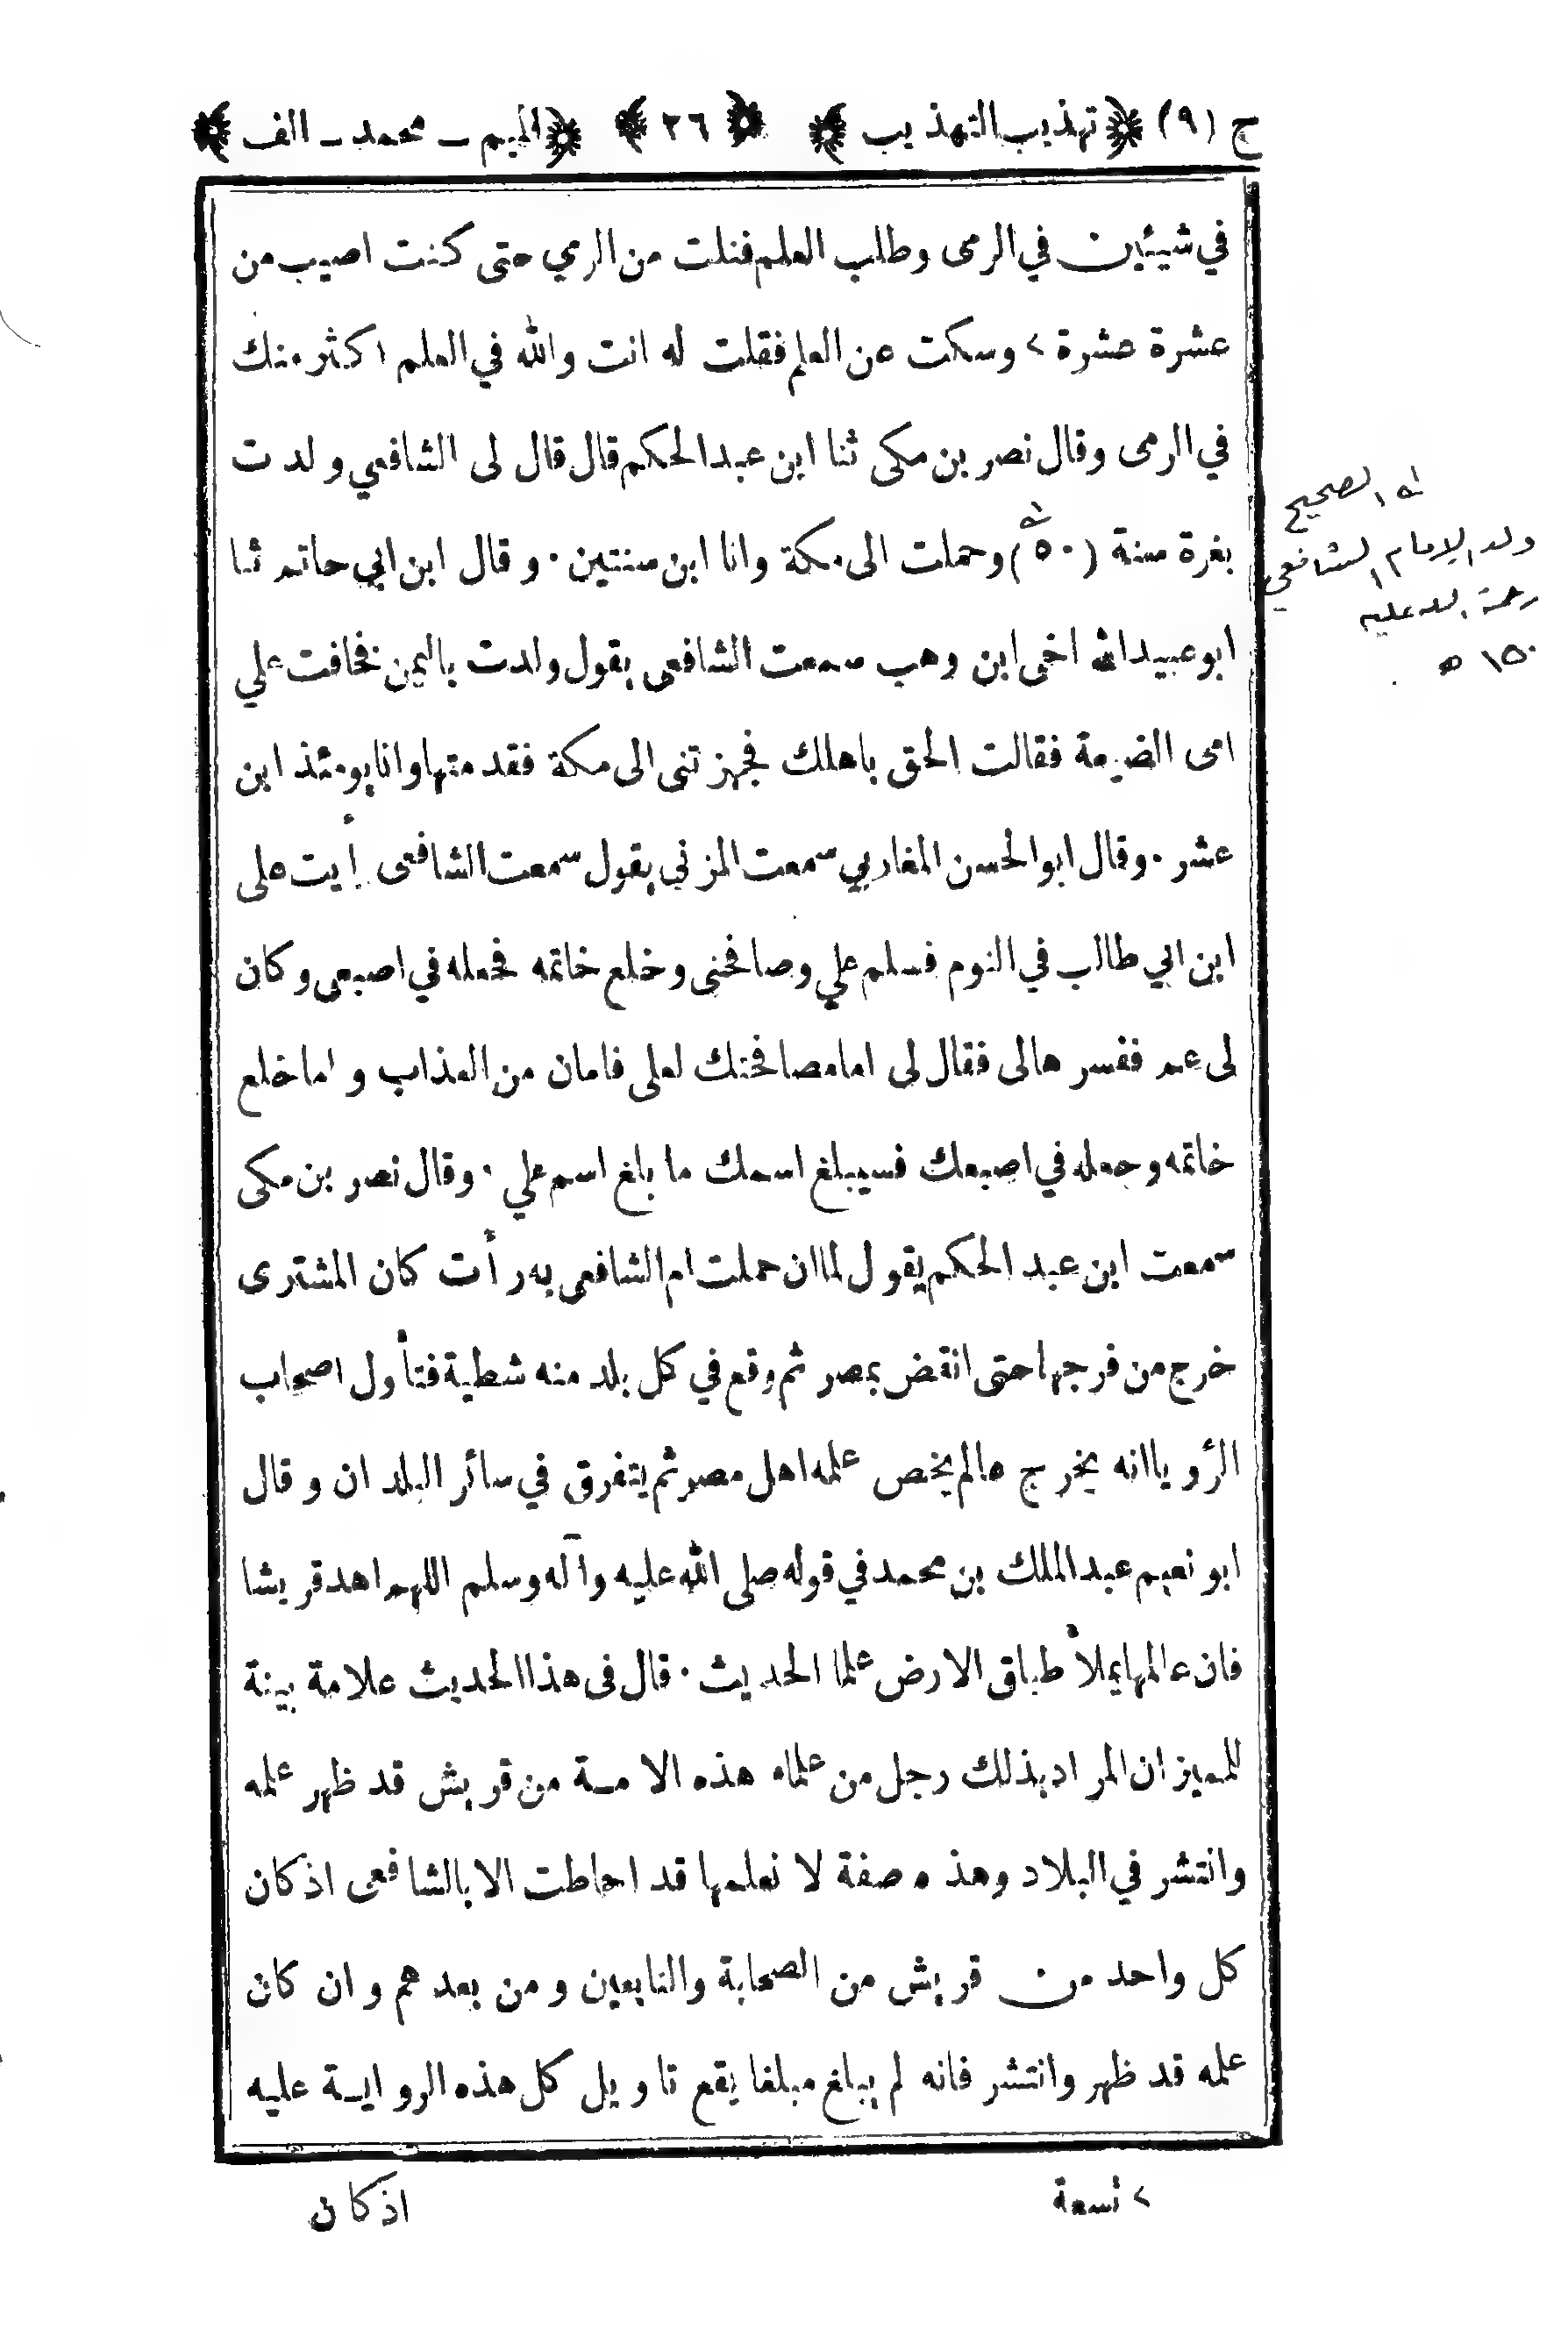 ج (٩) ﴿تهذيب التهذيب﴾ ﴿٢٦﴾ ﴿الميم – محمد – الف﴾
في شيئين في الرمى وطلب العلم فنلت من الرمي حتى كنت اصيب من
عشرة عشرة > وسكت عن العلم فقلت له انت والله في العلم اكثر منك
في الرمى وقال نصر بن مكى ثنا ابن عبد الحكم قال قال لى الشافعي ولدت
بغزة سنة (٥٠) وحملت الى مكة وانا ابن سنتين · وقال ابن ابي حاتم ثنا
ابو عبيد الله اخى ابن وهب سمعت الشافعى يقول ولدت باليمن فخافت علي
امى الضيعة فقالت الحق باهلك فجهزتنى الى مكة فقدمتها وانا يومئذ ابن
عشر · وقال ابو الحسن المغاربي سمعت المزني يقول سمعت الشافعى رأيت على
ابن ابي طالب في النوم فسلم علي وصافحنى وخلع خاتمه فجعله في اصبعى وكان
لى عم ففسرها لى فقال لى اما مصافحتك لعلى فامان من العذاب واما خلع
خاتمه وجعله في اصبعك فسيبلغ اسمك ما بلغ اسم علي · وقال نصر بن مكى
سمعت ابن عبد الحكم يقول لما ان حملت ام الشافعى به رأت كان المشترى
خرج من فرجها حتى انقض بمصر ثم وقع في كل بلد منه شظية فتأول اصحاب
الرؤيا انه يخرج عالم يخص علمه اهل مصر ثم يتفرق في سائر البلدان وقال
ابو نعيم عبد الملك بن محمد في قوله صلى الله عليه وآله وسلم اللهم اهد قريشا
فان عالمها يملأ طباق الارض علما الحديث · قال فى هذا الحديث علامة بينة
للمميز ان المراد بذلك رجل من علماء هذه الامة من قريش قد ظهر علمه
وانتشر في البلاد وهذه صفة لا نعلمها قد احاطت الا بالشافعى اذ كان
كل واحد من قريش من الصحابة والتابعين ومن بعدهم وان كان
علمه قد ظهر وانتشر فانه لم يبلغ مبلغا يقع تاويل كل هذه الرواية عليه
> تسعة
اذ كان
الصحيح
ولد الإمام الشافعي
رحمة الله عليه
١٥٠ ه